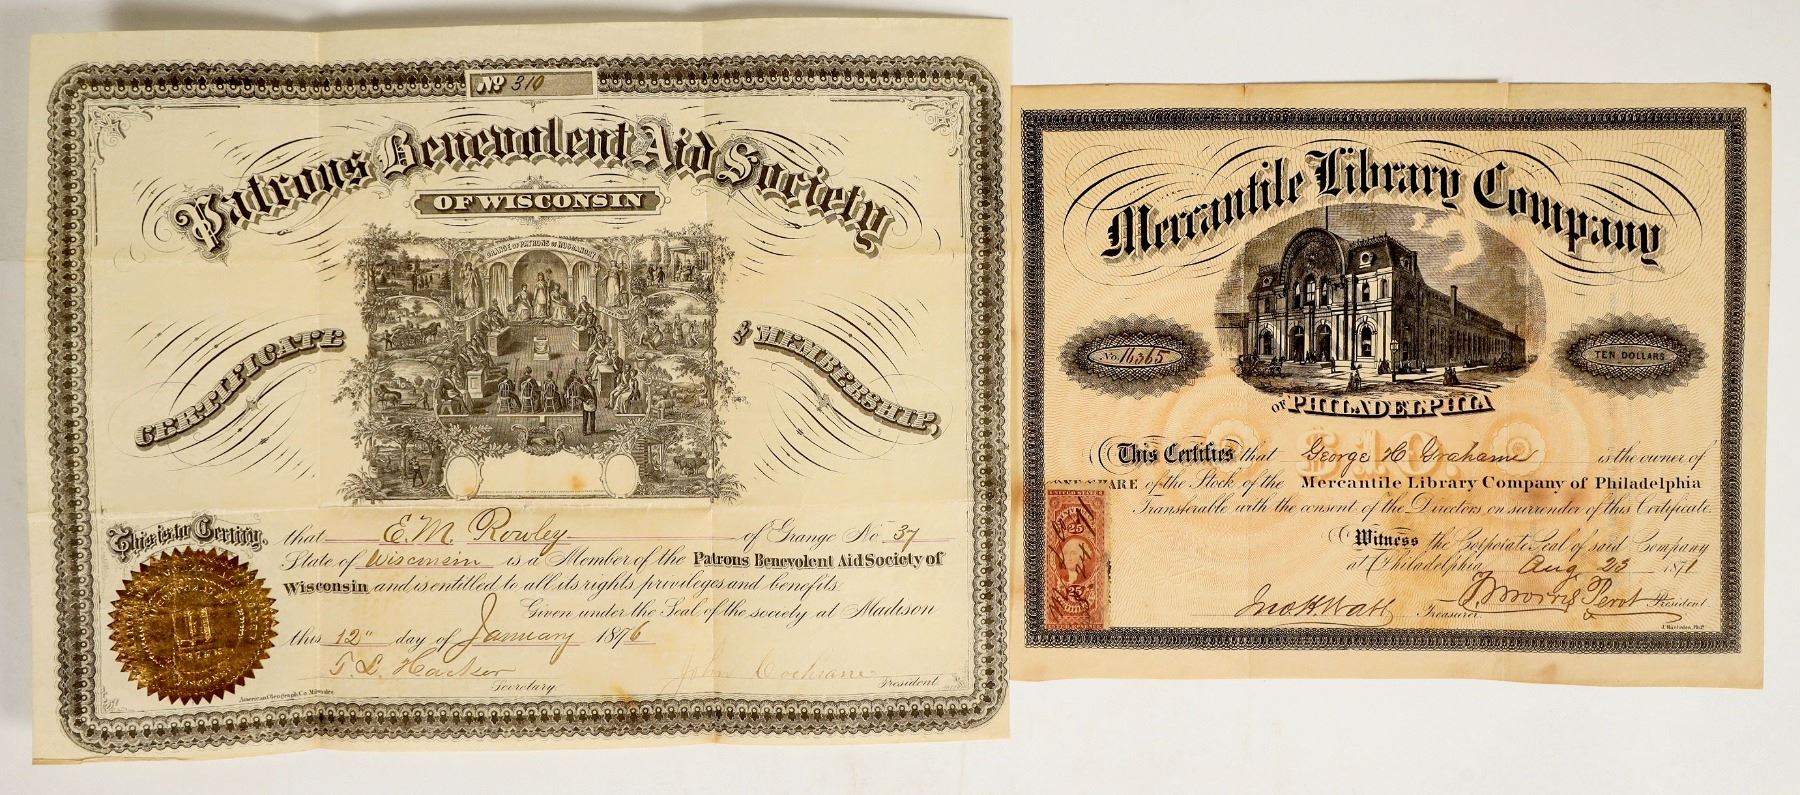 No 310
Patrons Benevolent Aid Society
OF WISCONSIN
GRANGE OF PATRONS OF HUSBANDRY
CERTIFICATE of MEMBERSHIP,
This is to Certify, that E. M. Rowley of Grange No 37
State of Wisconsin is a Member of the Patrons Benevolent Aid Society of
Wisconsin and is entitled to all its rights privileges and benefits.
Given under the Seal of the society at Madison
this 12" day of January 1876
Secretary
John Cochrane President
American Oleograph Co. Milwaukee
Mercantile Library Company
No. 16365
TEN DOLLARS
OF PHILADELPHIA
$10.
This Certifies that George H Grahame is the owner of
ONE SHARE of the Stock of the Mercantile Library Company of Philadelphia
Transferable with the consent of the Directors, on surrender of this Certificate.
Witness the Corporate Seal of said Company
at Philadelphia Aug 23 1871
T. Morris Perot President
Treasurer
UNITED STATES
25
25